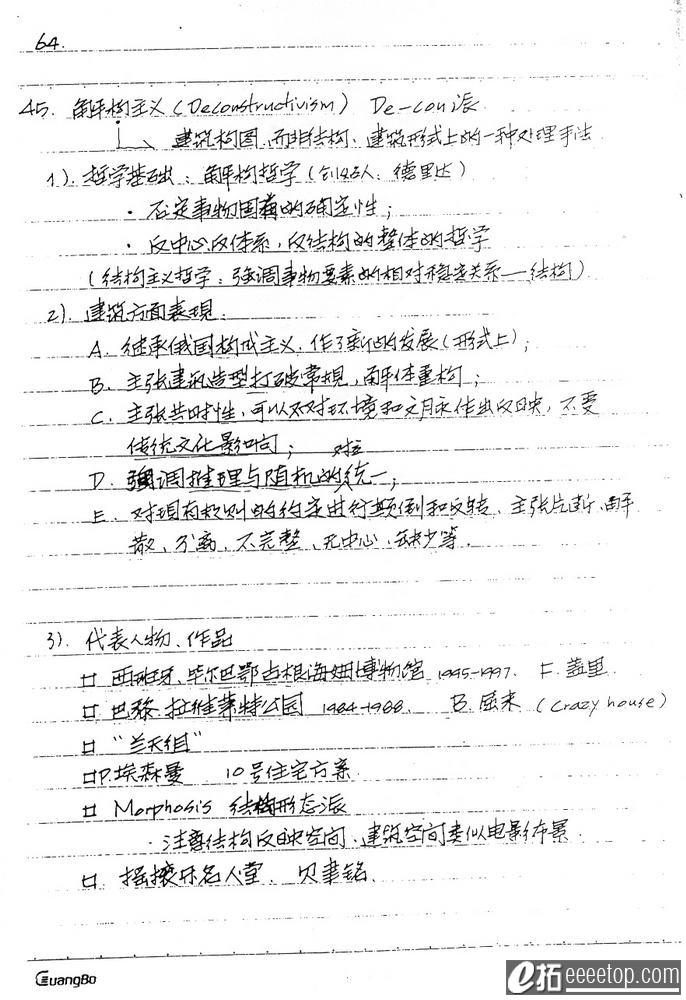 64.
45. 解构主义 (Deconstructivism) De-con派
建筑构图,而非结构、建筑形式上的一种处理手法
1). 哲学基础:解构哲学(创始人:德里达)
· 否定事物固有的确定性;
· 反中心反体系,反结构的整体的哲学
(结构主义哲学:强调事物要素的相对稳定关系——结构)
2). 建筑方面表现:
A. 继承俄国构成主义,作了新的发展(形式上);
B. 主张建筑造型打破常规,解体重构;
C. 主张共时性,可以不对环境和文脉作出反映,不受
传统文化影响;
对立
D. 强调推理与随机的统一;
E. 对现有规则的约定进行颠倒和反转、主张片断、解
散、分离、不完整、无中心、缺少等.
3). 代表人物、作品
□ 西班牙、毕尔巴鄂古根海姆博物馆 1995-1997. F.盖里
□ 巴黎·拉维莱特公园 1984-1988. B.屈米 (Crazy house)
□ “兰天组”
□P.埃森曼 10号住宅方案
□ Morphosis 结构形态派
·注意结构反映空间、建筑空间类似电影布景.
□ 摇滚乐名人堂. 贝聿铭.
GuangBo
e拓eeeetop.com